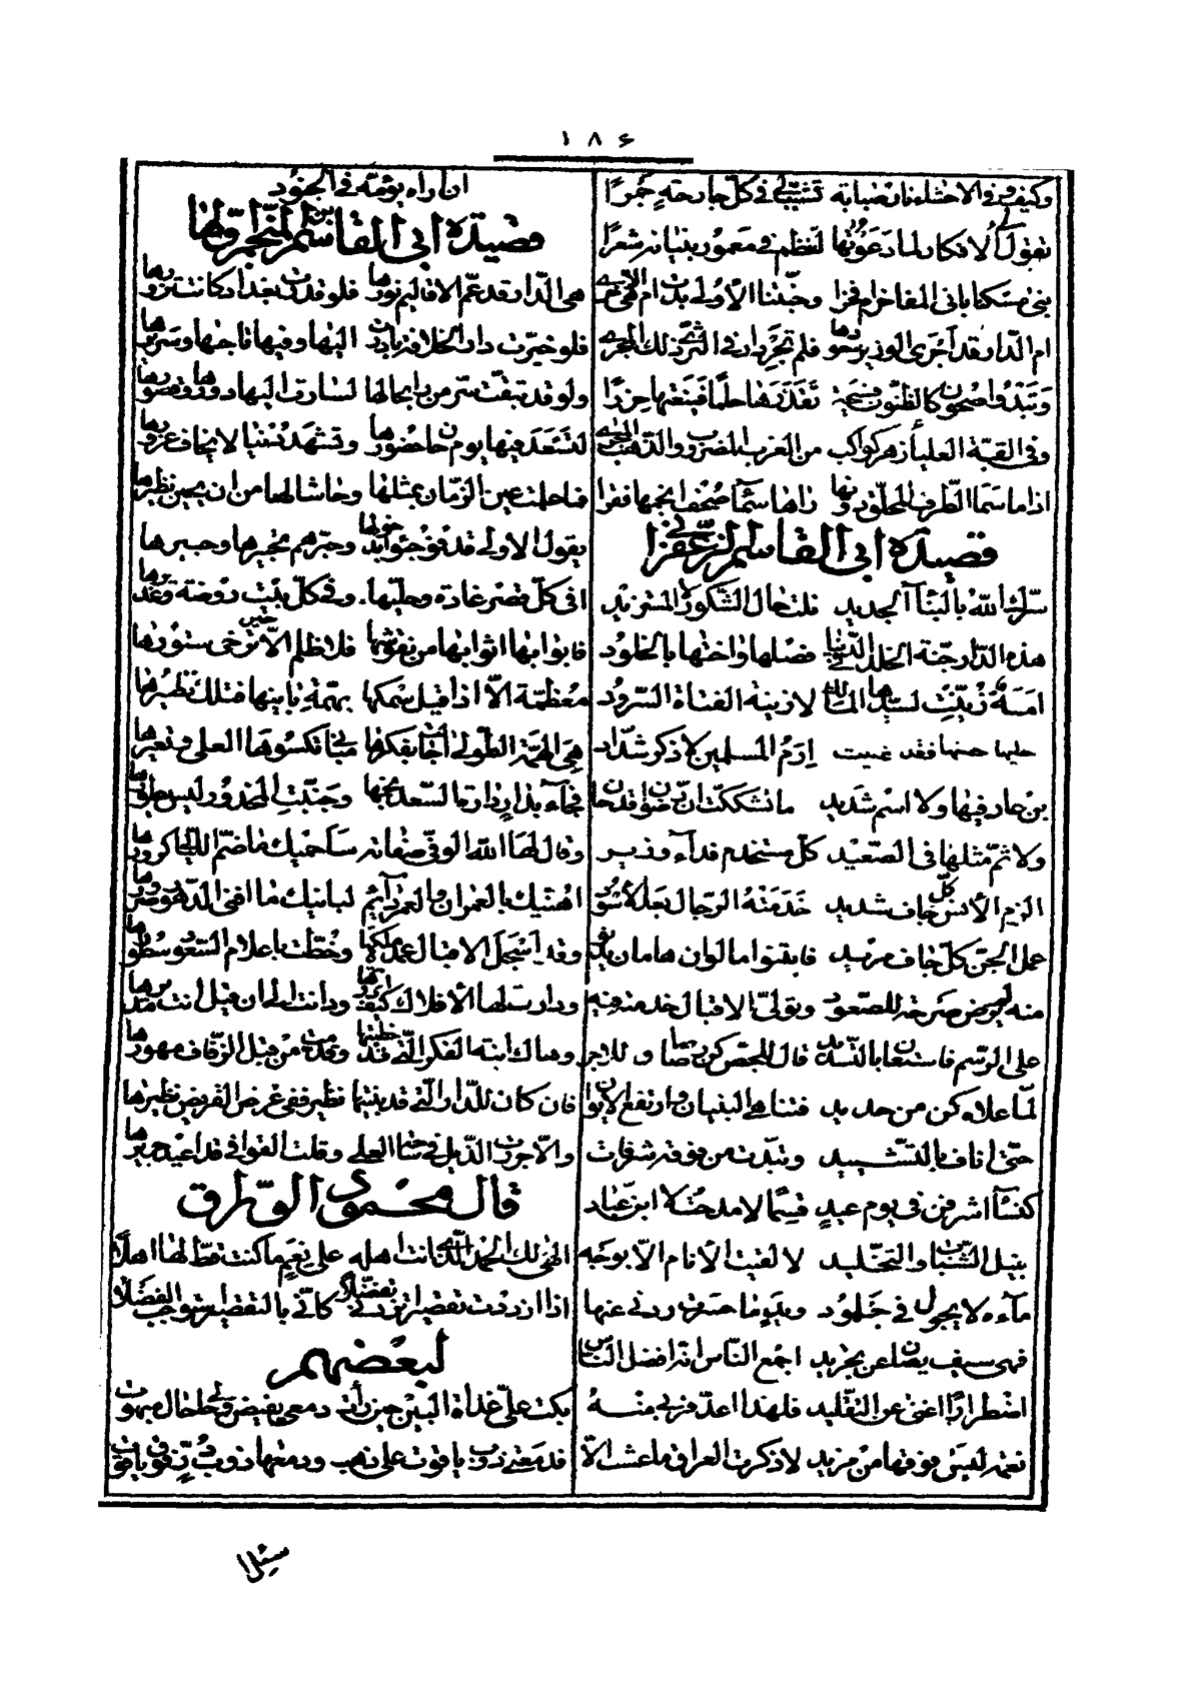 ١٨۶
وكيف وفي الاحشاء نار صبابة تشبب لي في كل جارحة جمرا
تقول لي الافكار لما دعوتها لتنظم في معمور بنيانه شعرا
بنى مسكنا باني المفاخر ام فخرا وجنتنا الاولى بدت ام الاخرى
ام الدار قد اجرى الوزير سعودها فلم تجر دار في الثرى ذلك المجرى
وتبدو صحون كالظنون فسيحة تقدرها حلما فينعتها حزرا
وفي القبة العلياء زهر كواكب من الغرب المضروب والذهب المجرى
اذا ما سما الطرف المحلق دونها راها سماء صحف انجمها تقرا
قصيدة ابي القاسم الزعفراني
سرك الله بالبناء الجديد نلت حال الشكور لا المستزيد
هذه الدار جنة الخلد في الدنيا فصلها واختها بالخلود
امة زينت لسيدها المالك لا زينة الفتاة الرود
حليها حسنها فقد غنيت ارم المسلمين لا ذكر شداد
بن عاد فيها ولا اسم شديد ما تشككت ان رضوان قد خان
ولا ثم مثلها في الصعيد كل مستخدم فداء وزير
الزم الانس كل جاف شديد خدمته الرجال بعد الاسود
عمل الجن كل جاف مريد فابتنوا ما لو ان هامان يدنو
منه لم يرض صرحه للصعود وتولى الاقبال خدمته فيه
على الرسم فاستعان بالتسديد قال للجص كن رصاصا وللاجر
لما علاه كن من حديد فتناهى البنيان وارتفع الايوان
حتى اناف بالتشييد وتبدت من فوقه شرفات
كنساء اشرفن في يوم عيد قسما لا مدحت الا ابن عباد
بنيل الشباب والتخليد لا لقيت الانام الا بوجه
ماءه لا يجول في خلود ويد ما حسرت ردني عنها
فهي سيف يصان عن تجريد اجمع الناس انه افضل الناس
اضطرارا اغنى عن التقليد فلهذا اعد قربي منه
نعمة ليس فوقها من مزيد لا ذكرت العراق ما عشت الا
ان اراه يؤمه في الجنود
قصيدة ابي القاسم بن المنجم اولها
هي الدار قد عم الاقاليم نورها فلو قدرت بغداد كانت تزورها
فلو خيرت دار الخلافة بادرت اليها وفيها تاجها وسريرها
ولو قد تبقت سر من را بحالها لسارت اليها دورها وقصورها
لتسعد فيها يوم حان حضورها وتشهد دنيا لا يخاف غرورها
فما حلت عين الزمان بمثلها وحاشا لها من ان يحين نظيرها
يقول الاولى قد فوجئوا بدخولها وحيرهم تحبيرها وحبيرها
افي كل قصر غادة وحليها وفي كل بيت روضة وغديرها
فابوابها اثوابها من نقوشها فلا ظلم الا حين ترخى ستورها
معظمة الا اذا قيل سمكها بهمة بانيها فتلك نظيرها
هي الهمة الطولى اجالت بفكرها مباني تكسوها العلى وتعيرها
فجاء بدار دارة السعد نجمها وجنبت المحذور ليس يطورها
وقال لها الله الوفي ضمانه ساحميك ما ضم الليالي كرورها
اهنيك بالعمران والعمر دائم لبانيك ما افنى الدهور مرورها
وقد اسجل الاقبال عهدا ملكها وخطت باعلام السعود سطورها
ودارت لها الافلاك كيف ادرتها ودانت الى ان قيل انت مديرها
وهاك ابنة الفكر التي قد خطبتها وقدمت من قبل الزفاف مهورها
فان كان للدار التي قد بنيتها نظير ففي عرض القريض نظيرها
والا جررت الذيل في ساحة العلى وقلت القوافي قد اعيد جريرها
قال محمود الوراق
الهي لك الحمد الذي انت اهله على نعم ما كنت قط لها اهلا
اذا ازددت تقصيرا تزدني تفضلا كاني بالتقصير استوجب الفضلا
لبعضهم
بكت علي غداة البين حين رات دمعي يفيض وحالي حال مبهوت
فدمعتي ذوب ياقوت على ذهب ودمعها ذوب در فوق ياقوت
سئلا